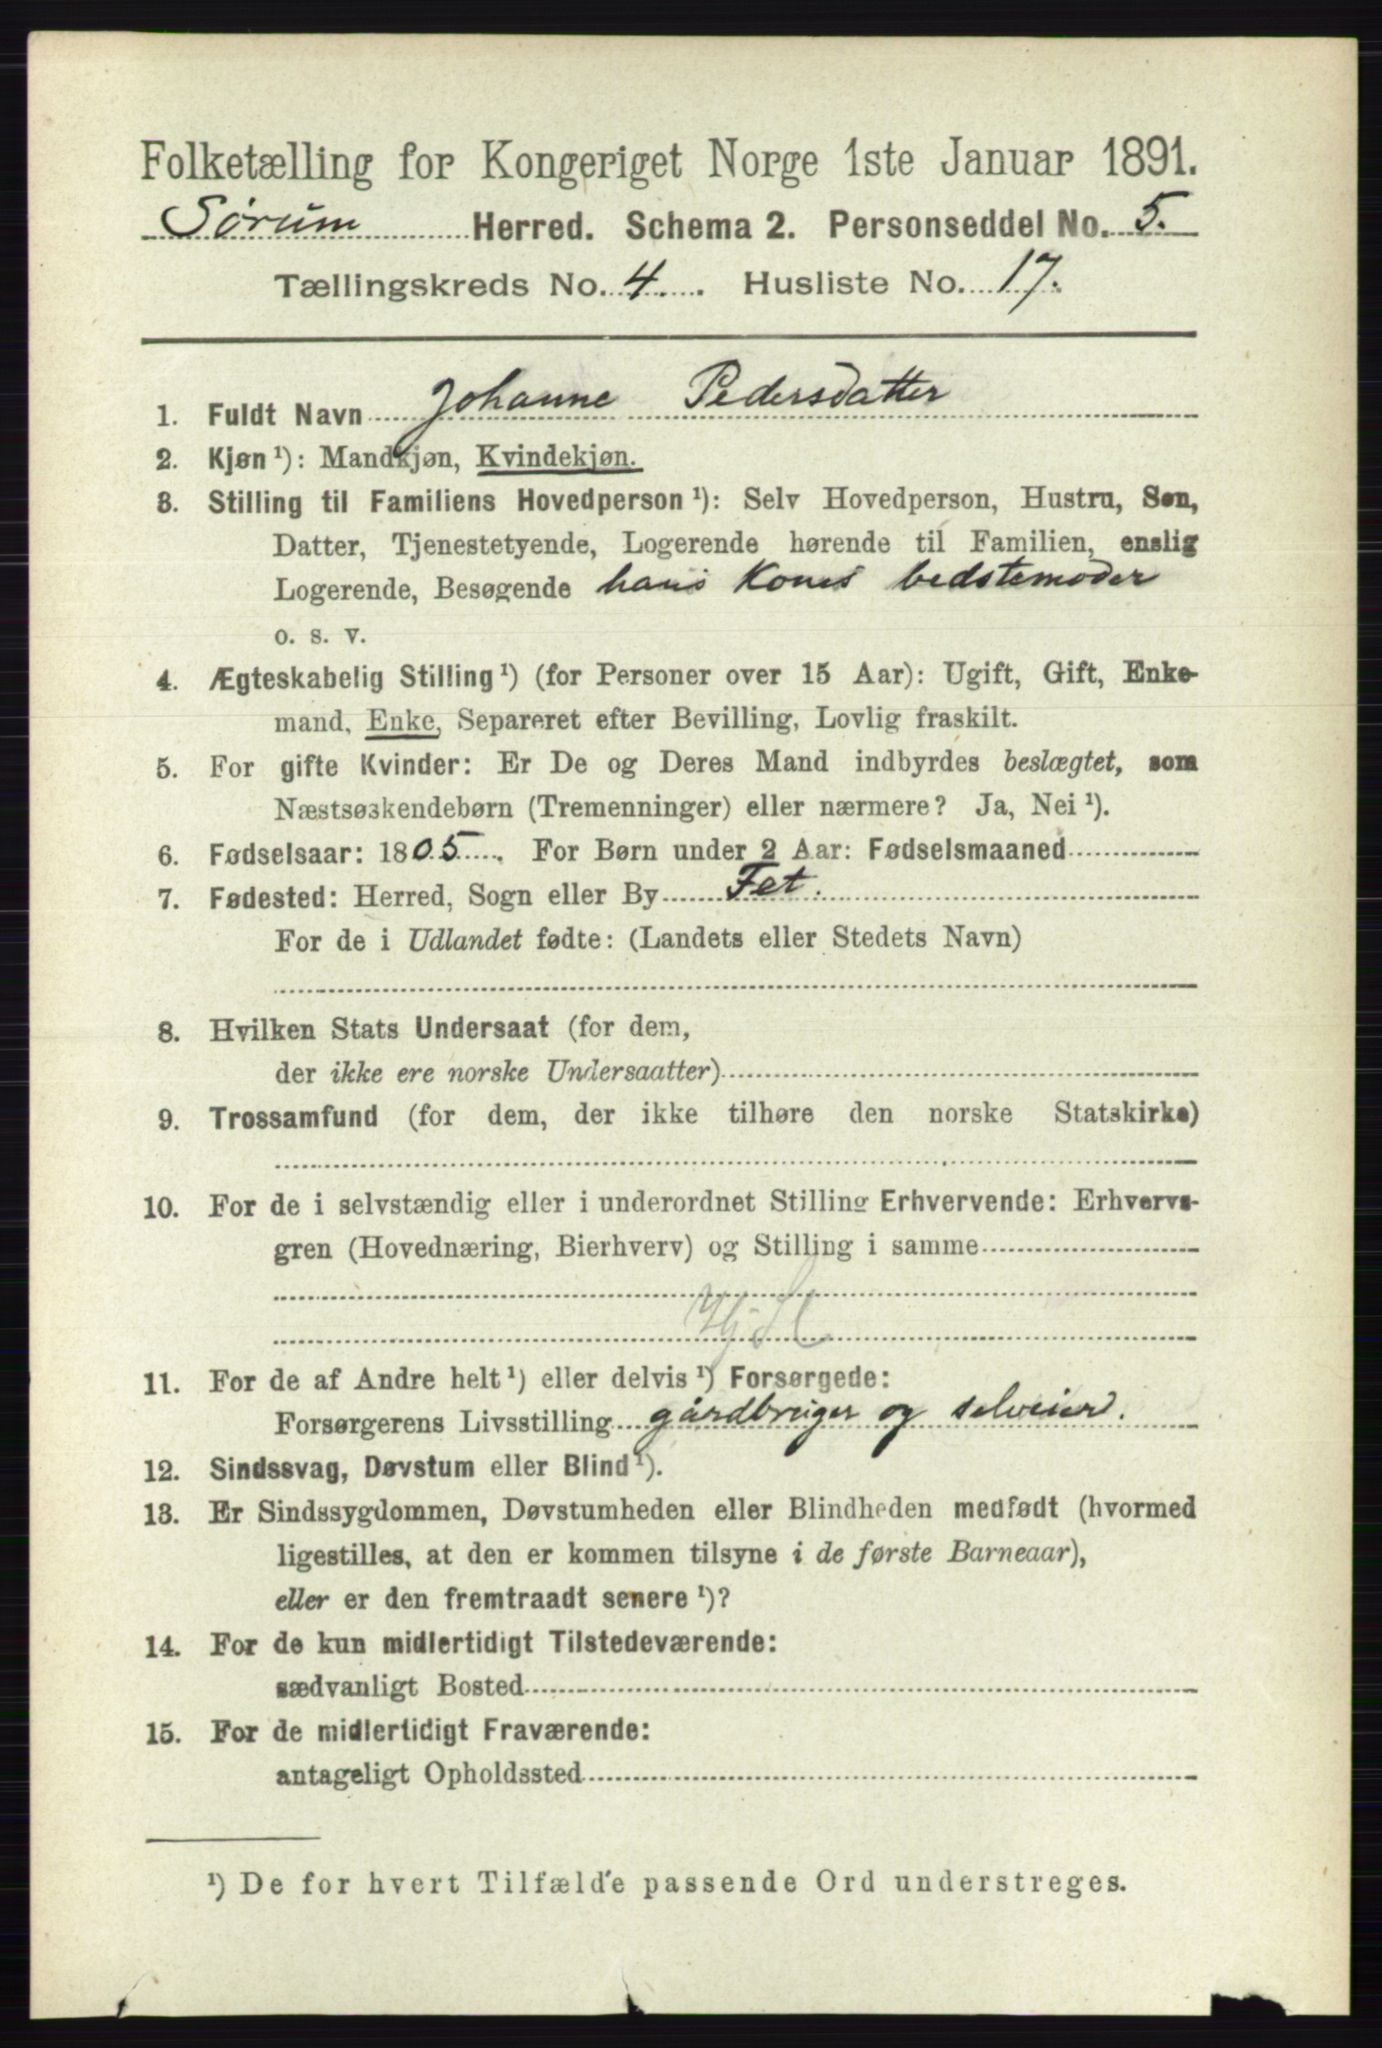 Folketælling for Kongeriget Norge 1ste Januar 1891.
Sørum Herred. Schema 2. Personseddel No. 5.
Tællingskreds No. 4. Husliste No. 17.
1. Fuldt Navn Johanne Pedersdatter
2. Kjøn ¹): Mandkjøn, Kvindekjøn.
3. Stilling til Familiens Hovedperson ¹): Selv Hovedperson, Hustru, Søn,
Datter, Tjenestetyende, Logerende hørende til Familien, enslig
Logerende, Besøgende hans Kones bedstemoder
o. s. v.
4. Ægteskabelig Stilling ¹) (for Personer over 15 Aar): Ugift, Gift, Enke-
mand, Enke, Separeret efter Bevilling, Lovlig fraskilt.
5. For gifte Kvinder: Er De og Deres Mand indbyrdes beslægtet, som
Næstsøskendebørn (Tremenninger) eller nærmere? Ja, Nei ¹).
6. Fødselsaar: 1805. For Børn under 2 Aar: Fødselsmaaned
7. Fødested: Herred, Sogn eller By Fet.
For de i Udlandet fødte: (Landets eller Stedets Navn)
8. Hvilken Stats Undersaat (for dem,
der ikke ere norske Undersaatter)
9. Trossamfund (for dem, der ikke tilhøre den norske Statskirke)
10. For de i selvstændig eller i underordnet Stilling Erhvervende: Erhvervs-
gren (Hovednæring, Bierhverv) og Stilling i samme
11. For de af Andre helt ¹) eller delvis ¹) Forsørgede:
Forsørgerens Livsstilling gårdbruger og selveier.
12. Sindssvag, Døvstum eller Blind ¹).
13. Er Sindssygdommen, Døvstumheden eller Blindheden medfødt (hvormed
ligestilles, at den er kommen tilsyne i de første Barneaar),
eller er den fremtraadt senere ¹)?
14. For de kun midlertidigt Tilstedeværende:
sædvanligt Bosted
15. For de midlertidigt Fraværende:
antageligt Opholdssted
¹) De for hvert Tilfælde passende Ord understreges.